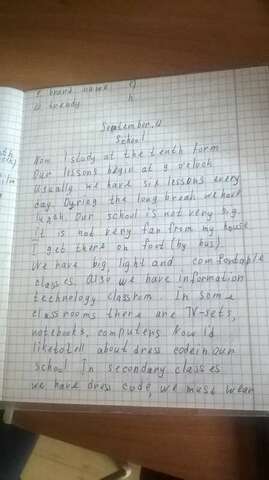 brand name
trendy
h
September, 4
School
Now I study at the tenth form
Our lessons begin at 9 o'cloch
Usually we have six lessons every
day. Dyring the long break we have
lunch. Our school is not very big.
It is not very far from my house
I get there on foot (by bus).
We have big, light and comfortable
classes. Also we have information
technology classrom. In some
classrooms there are TV-sets,
notebooks, computers Now I'd
like to tell about dress code in our
school In secondary classes
we have dress code, we must wear